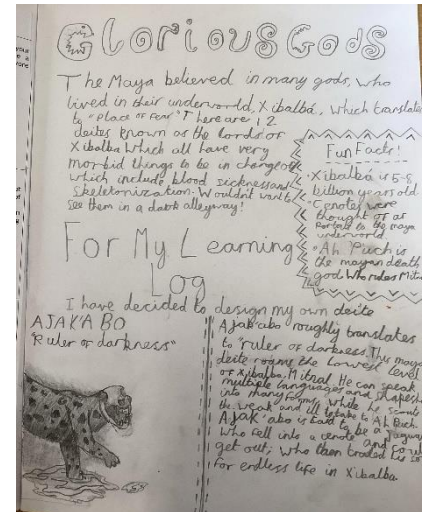 Glorious Gods
The Maya believed in many gods, who
lived in their underworld, Xibalbá, which translates
to "Place of fear" There are 12
deites known as the lords of
Xibalba which all have very
morbid things to be in charge of
which include, blood sickness and
skeletonization. Wouldn't want to
see them in a dark alleyway!
Fun Facts!
•Xibalba is 5-8
billion years old
•Cenotes were
thought of as
Portals to the maya
underworld
•Ah Puch is
the mayan death
god who rules Mitnal
For My Learning
Log
I have decided to design my own deite
AJAK'A BO
"Ruler of darkness"
Ajak'abo roughly translates
to "ruler of darkness. This maya
deite roams the lowest level
of Xibalba, Mitnal. He can speak
multiple languages and shapeshift
into many forms, while he scouts
the weak and ill to take to Ah Puch.
Ajak'abo is said to be a jaguar
who fell into a cenote, and couldn't
get out; who then traded his
for endless life in Xibalba